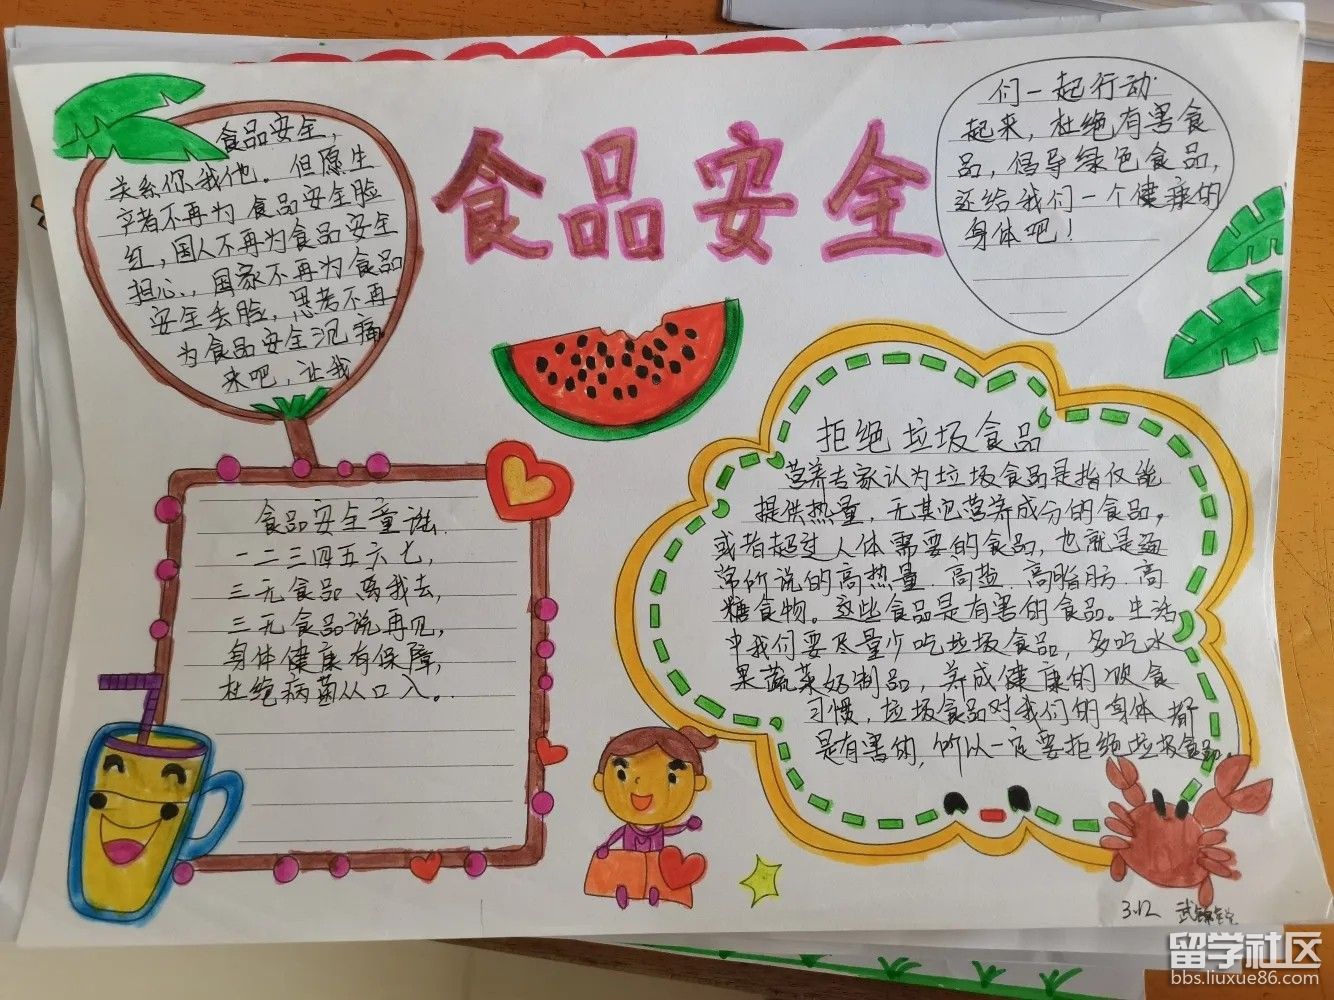 食品安全
食品安全，
关系你我他。但愿生
产者不再为食品安全脸
红，国人不再为食品安全
担心，国家不再为食品
安全丢脸，思考不再
为食品安全沉痛。
来吧，让我
们一起行动
起来，杜绝有害食
品，倡导绿色食品，
还给我们一个健康的
身体吧！
食品安全童谣
一二三四五六七，
三无食品离我去，
三无食品说再见，
身体健康有保障，
杜绝病菌从口入。
拒绝垃圾食品
营养专家认为垃圾食品是指仅能
提供热量，无其它营养成分的食品，
或者超过人体需要的食品，也就是通
常所说的高热量、高盐、高脂肪、高
糖食物。这些食品是有害的食品。生活
中我们要尽量少吃垃圾食品，多吃水
果蔬菜奶制品，养成健康的饮食
习惯，垃圾食品对我们的身体都
是有害的，所以一定要拒绝垃圾食品。
3.12 武
留学社区
bbs.liuxue86.com